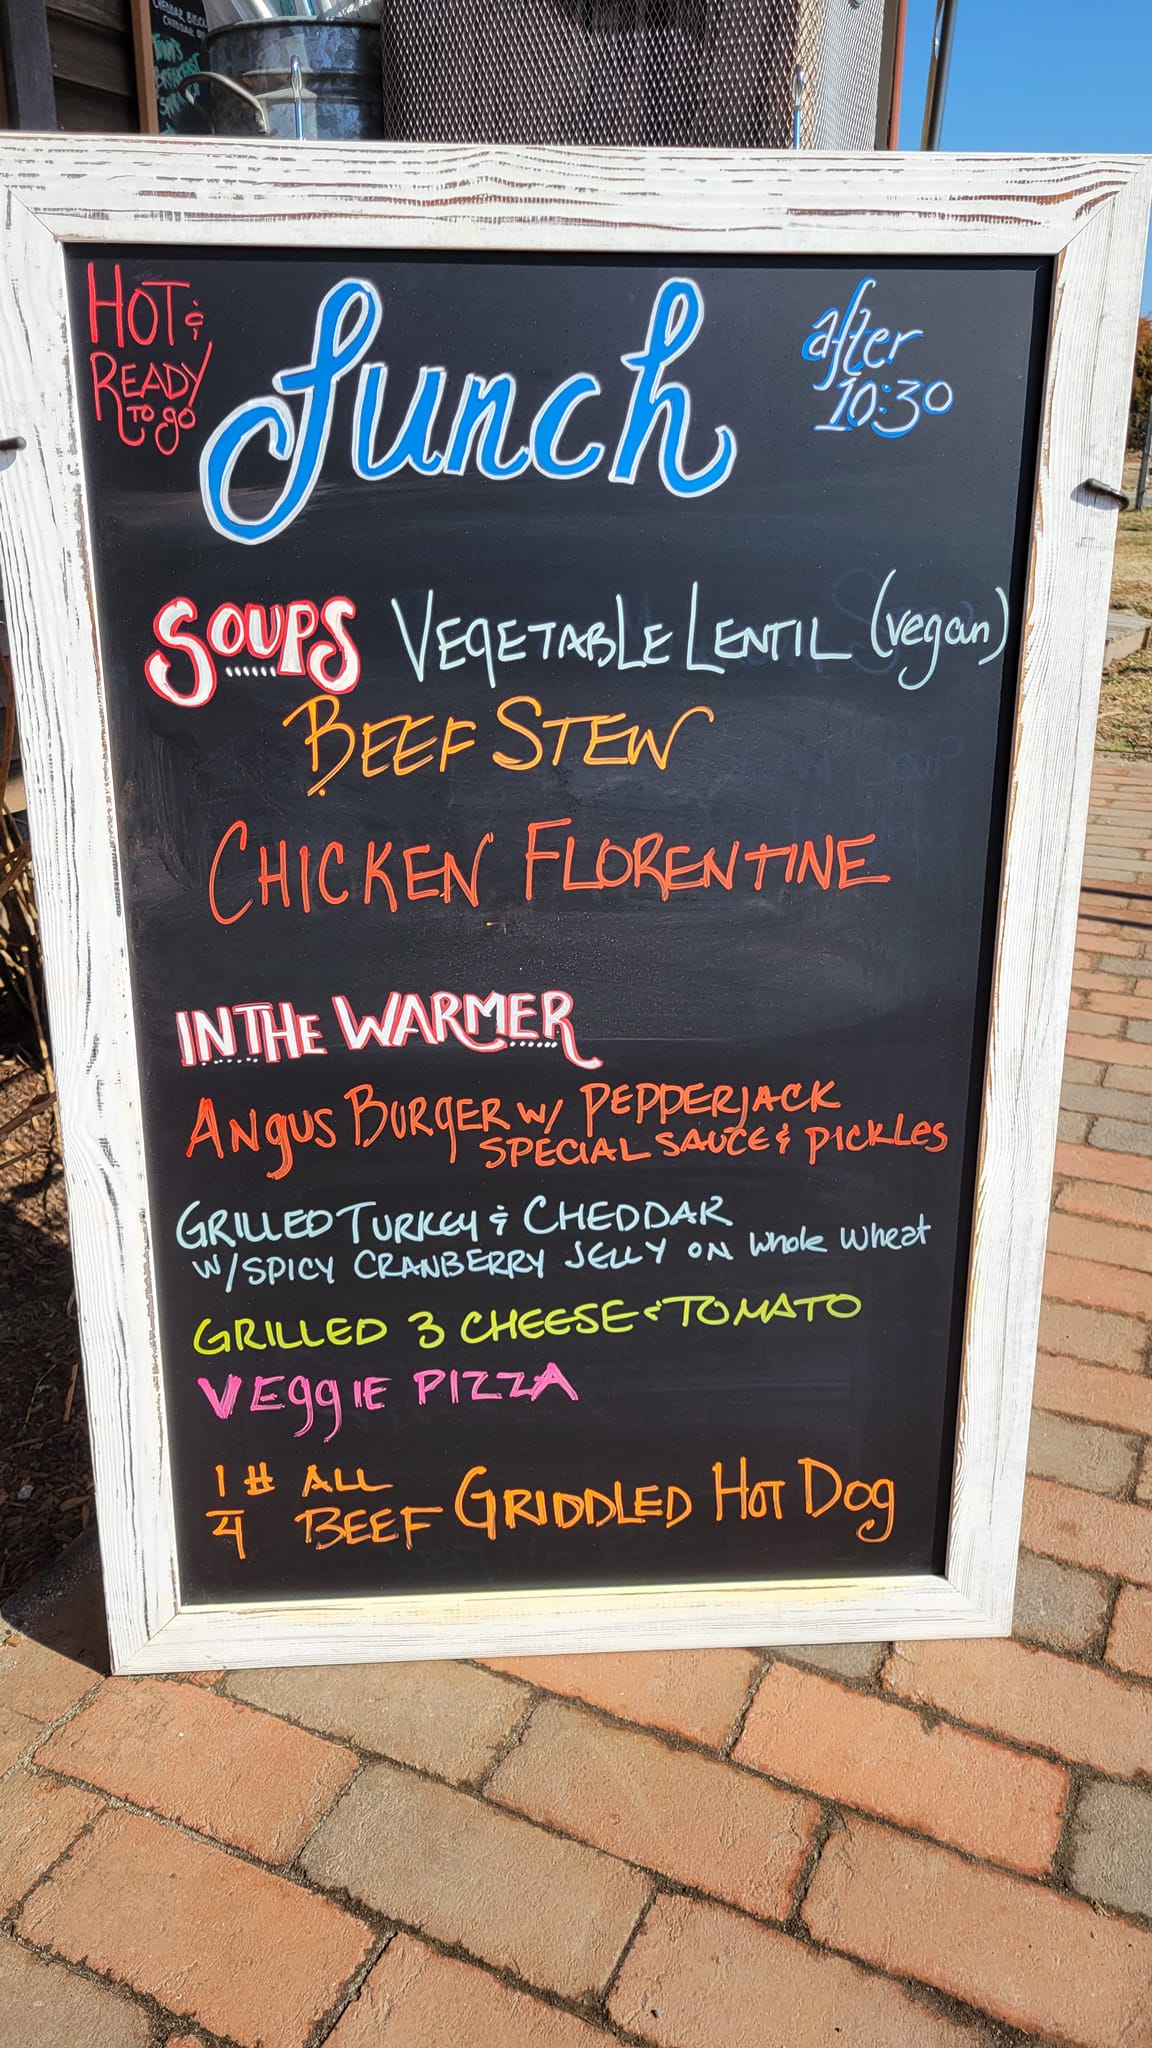 CHEDDAR
HOT &
READY
TO go
Lunch
after
10:30
SOUPS VEGETABLE LENTIL (vegan)
BEEF STEW
CHICKEN FLORENTINE
IN THE WARMER
ANgUS BURGER W/ PEPPERJACK
SPECIAL SAUCE & PICKLES
GRILLED TURKEY & CHEDDAR
W/ SPICY CRANBERRY JELLY ON whole wheat
GRILLED 3 CHEESE & TOMATO
VEggIE PIZZA
1/4 # ALL BEEF GRIDDLED HOT DOg